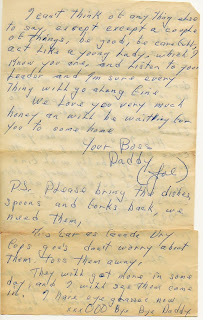 I cant think of any thing else
to say, except except a couple
of things, be good, be careful,
act like a young lady, which I
know you are and listen to your
leader and I'm sure every
thing will go along fine
We love you very much
honey an will be waitting for
you to come home
Your Boss
Daddy
(Joe)
P.S. Please bring the dishes,
spoons and forks back, we
need them,
This
dont worry about
them toss them away,
They will get done in some
day, and I will see them come
in. I have eye glasses now
xxxOOO Bye Bye Daddy